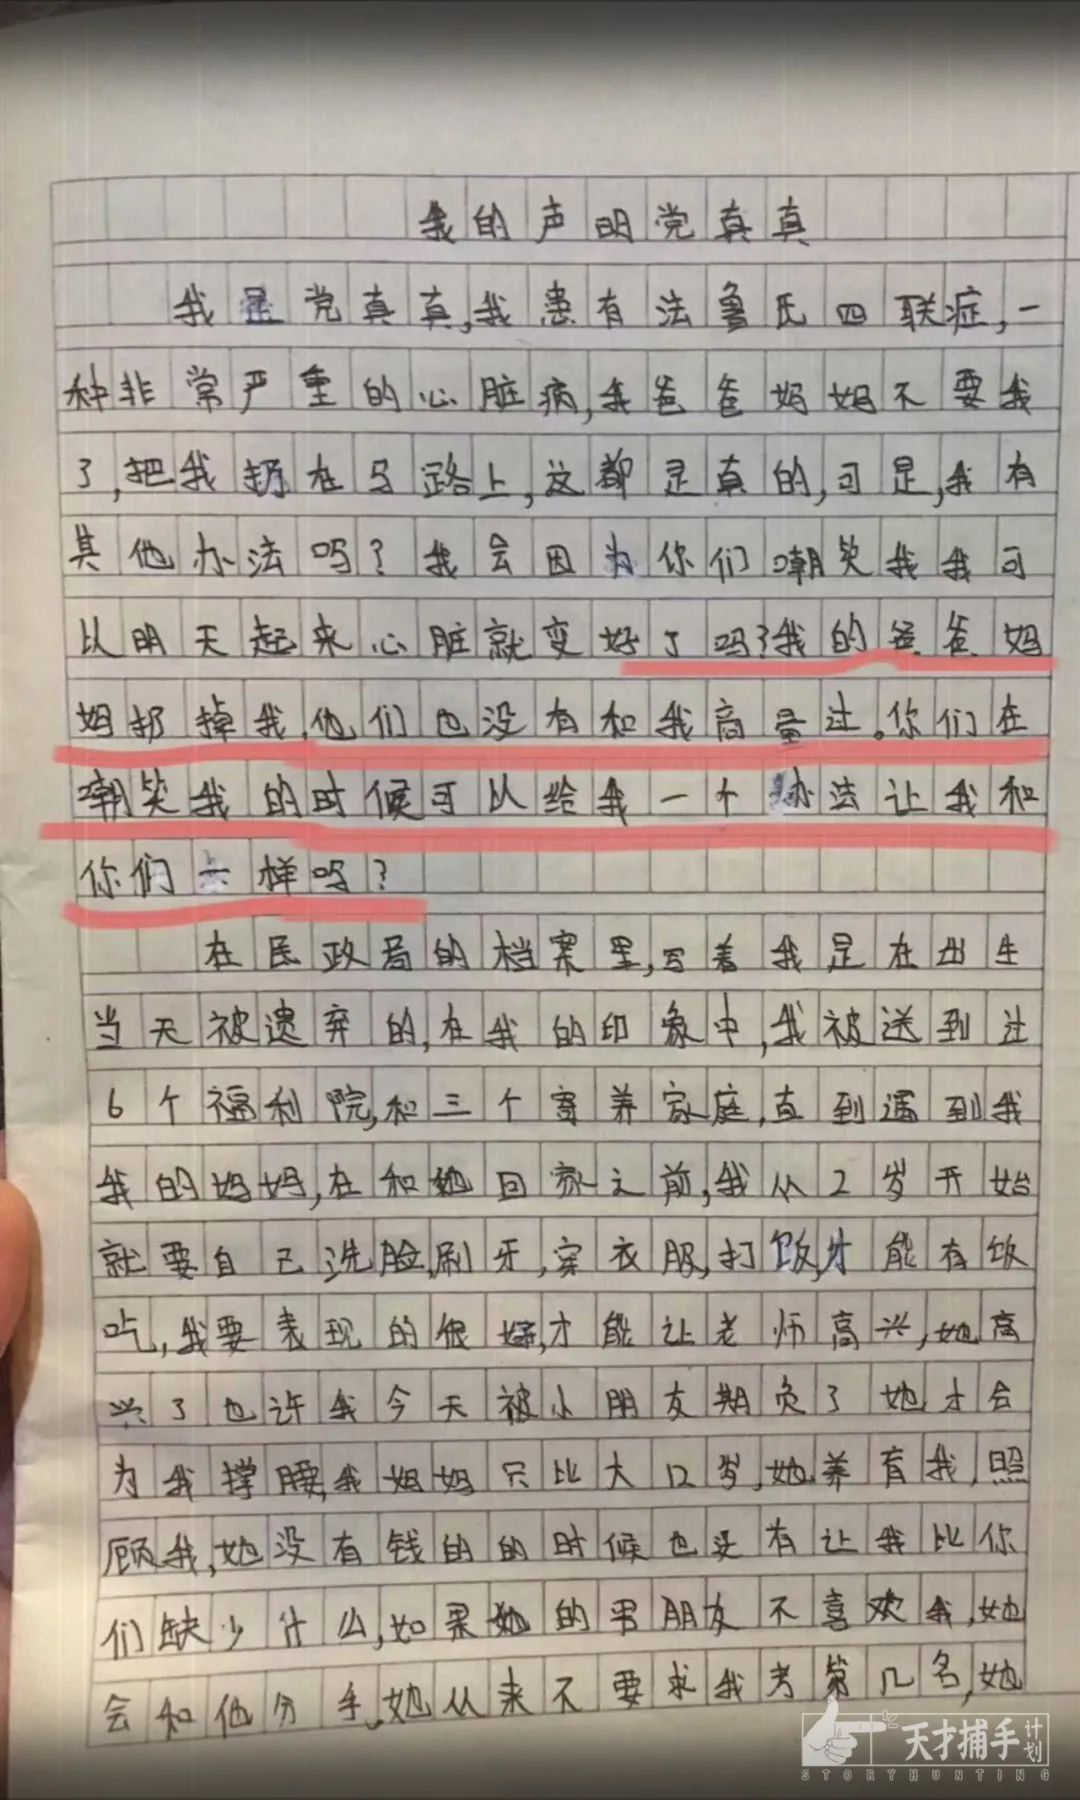 我的声明党真真
我是党真真,我患有法鲁氏四联症,一
种非常严重的心脏病,我爸爸妈妈不要我
了,把我扔在马路上,这都是真的,可是,我有
其他办法吗?我会因为你们嘲笑我我可
以明天起来心脏就变好了吗?我的爸爸妈
妈扔掉我,他们也没有和我商量过。你们在
嘲笑我的时候可以给我一个办法让我和
你们一样吗?
在民政局的档案里,写着我是在出生
当天被遗弃的,在我的印象中,我被送到过
6个福利院,和三个寄养家庭,直到遇到我
我的妈妈,在和她回家之前,我从2岁开始
就要自己洗脸,刷牙,穿衣服,打饭,才能有饭
吃,我要表现的很好,才能让老师高兴,她高
兴了也许我今天被小朋友期负了她才会
为我撑腰,我妈妈只比大12岁,她养有我,照
顾我,她没有钱的的时候也没有让我比你
们缺少什么,如果她的男朋友不喜欢我,她
会和他分手,她从来不要求我考第几名,她
天才捕手计划
STORYHUNTING